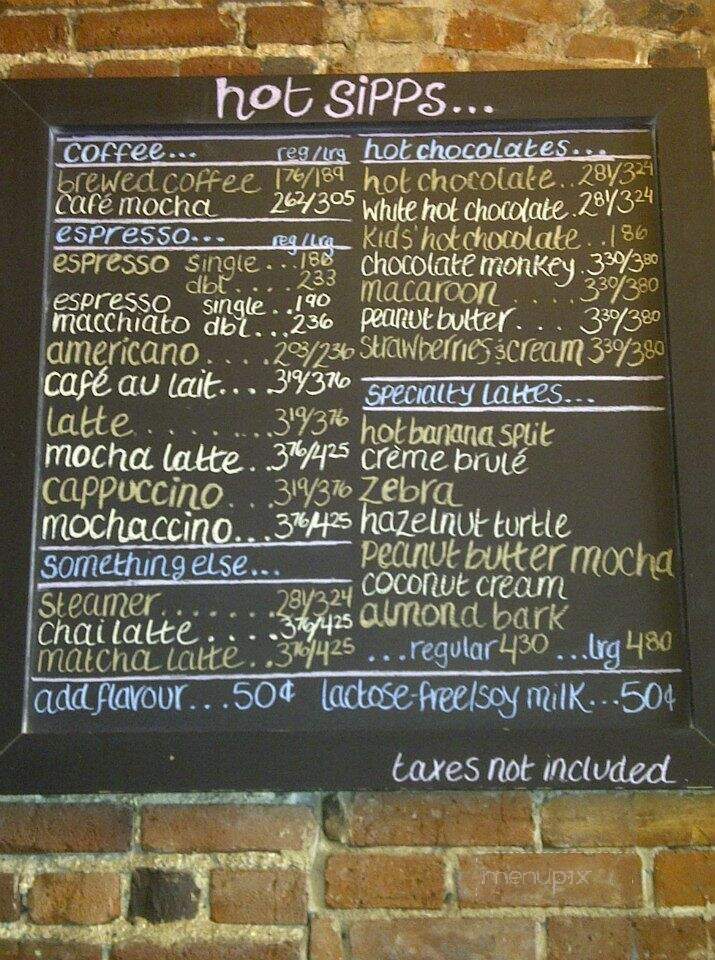 hot sipps...
coffee... reg/lrg
brewed coffee 176/189
café mocha 262/305
espresso... reg/lrg
espresso single...186
dbl....233
espresso single..190
macchiato dbl...236
americano....203/236
café au lait....319/376
latte..........319/376
mocha latte..376/425
cappuccino...319/376
mochaccino...376/425
something else...
steamer.......281/324
chai latte....376/425
matcha latte..376/425
hot chocolates...
hot chocolate..281/324
white hot chocolate.281/324
kids' hot chocolate..186
chocolate monkey.330/380
macaroon.....330/380
peanut butter....330/380
strawberries & cream 330/380
specialty lattes...
hot banana split
crème brulé
zebra
hazelnut turtle
peanut butter mocha
coconut cream
almond bark
...regular 430 ...lrg 480
add flavour...50¢ lactose-free/soy milk...50¢
taxes not included
menupix